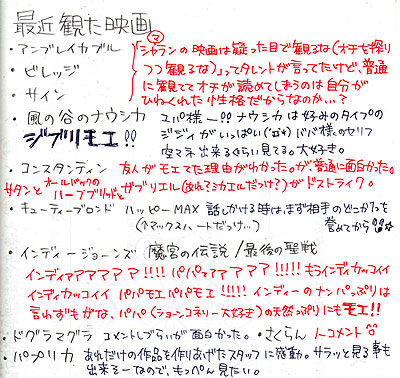 最近観た映画
・アンブレイカブル
・ビレッジ
・サイン
「シャランの映画は疑った目で観るな(オチを探り
つつ観るな)」ってタレントが言ってたけど、普通
に観ててオチが読めてしまうのは自分が
ひねくれた性格だからなのか…?
・風の谷のナウシカ ユパ様ー!!ナウシカは好みのタイプの
ジブリモエ!! ジジイがいっぱい ババ様のセリフ
空で出来るくらい見てる。大好き。
・コンスタンティン 友人がモエてた理由がわかった。が普通に面白かった。
サタンとオールバックのハーフブリッドとガブリエル(あれ?ミカエルだっけ?)がドストライク。
・キューティーブロンド ハッピーMAX 話しかける時は、まず相手のどこかを
(↑マックスハートだっけ…?) 誉めてから!!
・インディージョーンズ 魔宮の伝説/最後の聖戦
インディアアアアア!!!!パパァァアアアア!!!!!もうインディカッコイイ
インディカッコイイ パパモエパパモエ!!!!!インディーのナンパっぷりは
言わずもがな、パパ(ショーンコネリー大好き)の天然っぷりにもモエ!!
・ドグラマグラ コメントしづらいが面白かった。 ・さくらん ノーコメント
・パプリカ あれだけの作品を作りあげたスタッフに感動。サラッと見る事も
出来るーなので、もっぺん見たい。